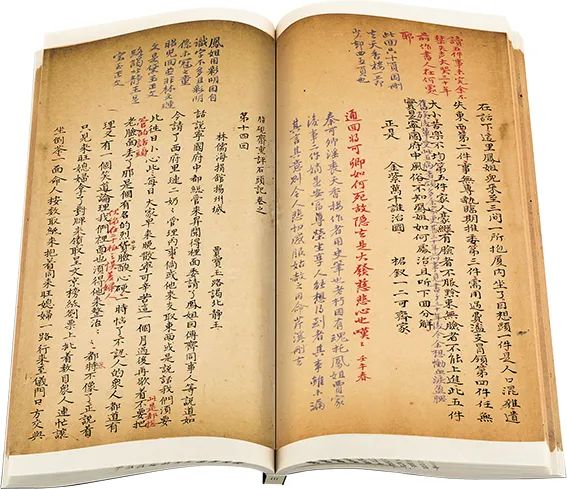 讀五件事未完余不
禁失声大哭三十年
前作書人在何處
耶
在話下這里鳳姐兒來至三間一所抱厦内坐了因想頭一件是人口混雜遺
失東西第二件事無專執臨期推委第三件需用過費濫支冒領第四件任無
大小苦樂不均第五件家人豪縱有臉者不服鈐束無臉者不能上進此五件
實是寧國府中風俗不知鳳姐如何處治且听下回分解
正是 金紫萬千誰治國 裙釵一二可齊家
此回只十頁因刪
去天香樓一節
少却四五頁也
通回將可卿如何死故隱去是大發慈悲心也嘆嘆壬午春
秦可卿淫喪天香楼作者用史筆也老朽因有魂托鳳姐賈家
後事二件嫡是安富尊榮坐享人能想得到處其事雖未漏
其言其意則令人悲切感服姑赦之因命芹溪刪去
鳳姐用彩明因自
識字不多且彩明
係未冠之童
昭兒回並非林文璉
文是黛玉正文
路謁北靜王是
寶玉正文
脂硯齋重評石頭記卷之
第十四回
林儒海捐館揚州城
賈寶玉路謁北靜王
話説寧國府中都總管來昇聞得裡面委請了鳳姐因傳齊同事人等説道如
今請了西府里璉二奶奶管理内事倘或他來支取東西或是説話我們須要
比徃日小心些每日大家早來晚散寧可辛苦這一個月過後再歇着不要把
老臉面丢了那是個有名的烈貨臉酸心硬一時惱了不認人的衆人都道有
理又有一個笑道論理我們裡面也須得他來整治整治都特不像了正説着
只見來旺媳婦拿了對牌來領取呈文京榜紙劄票上批着數目衆人連忙讓
坐倒茶一面命人按數取紙來抱着同來旺媳婦一路行來至儀門口方交與